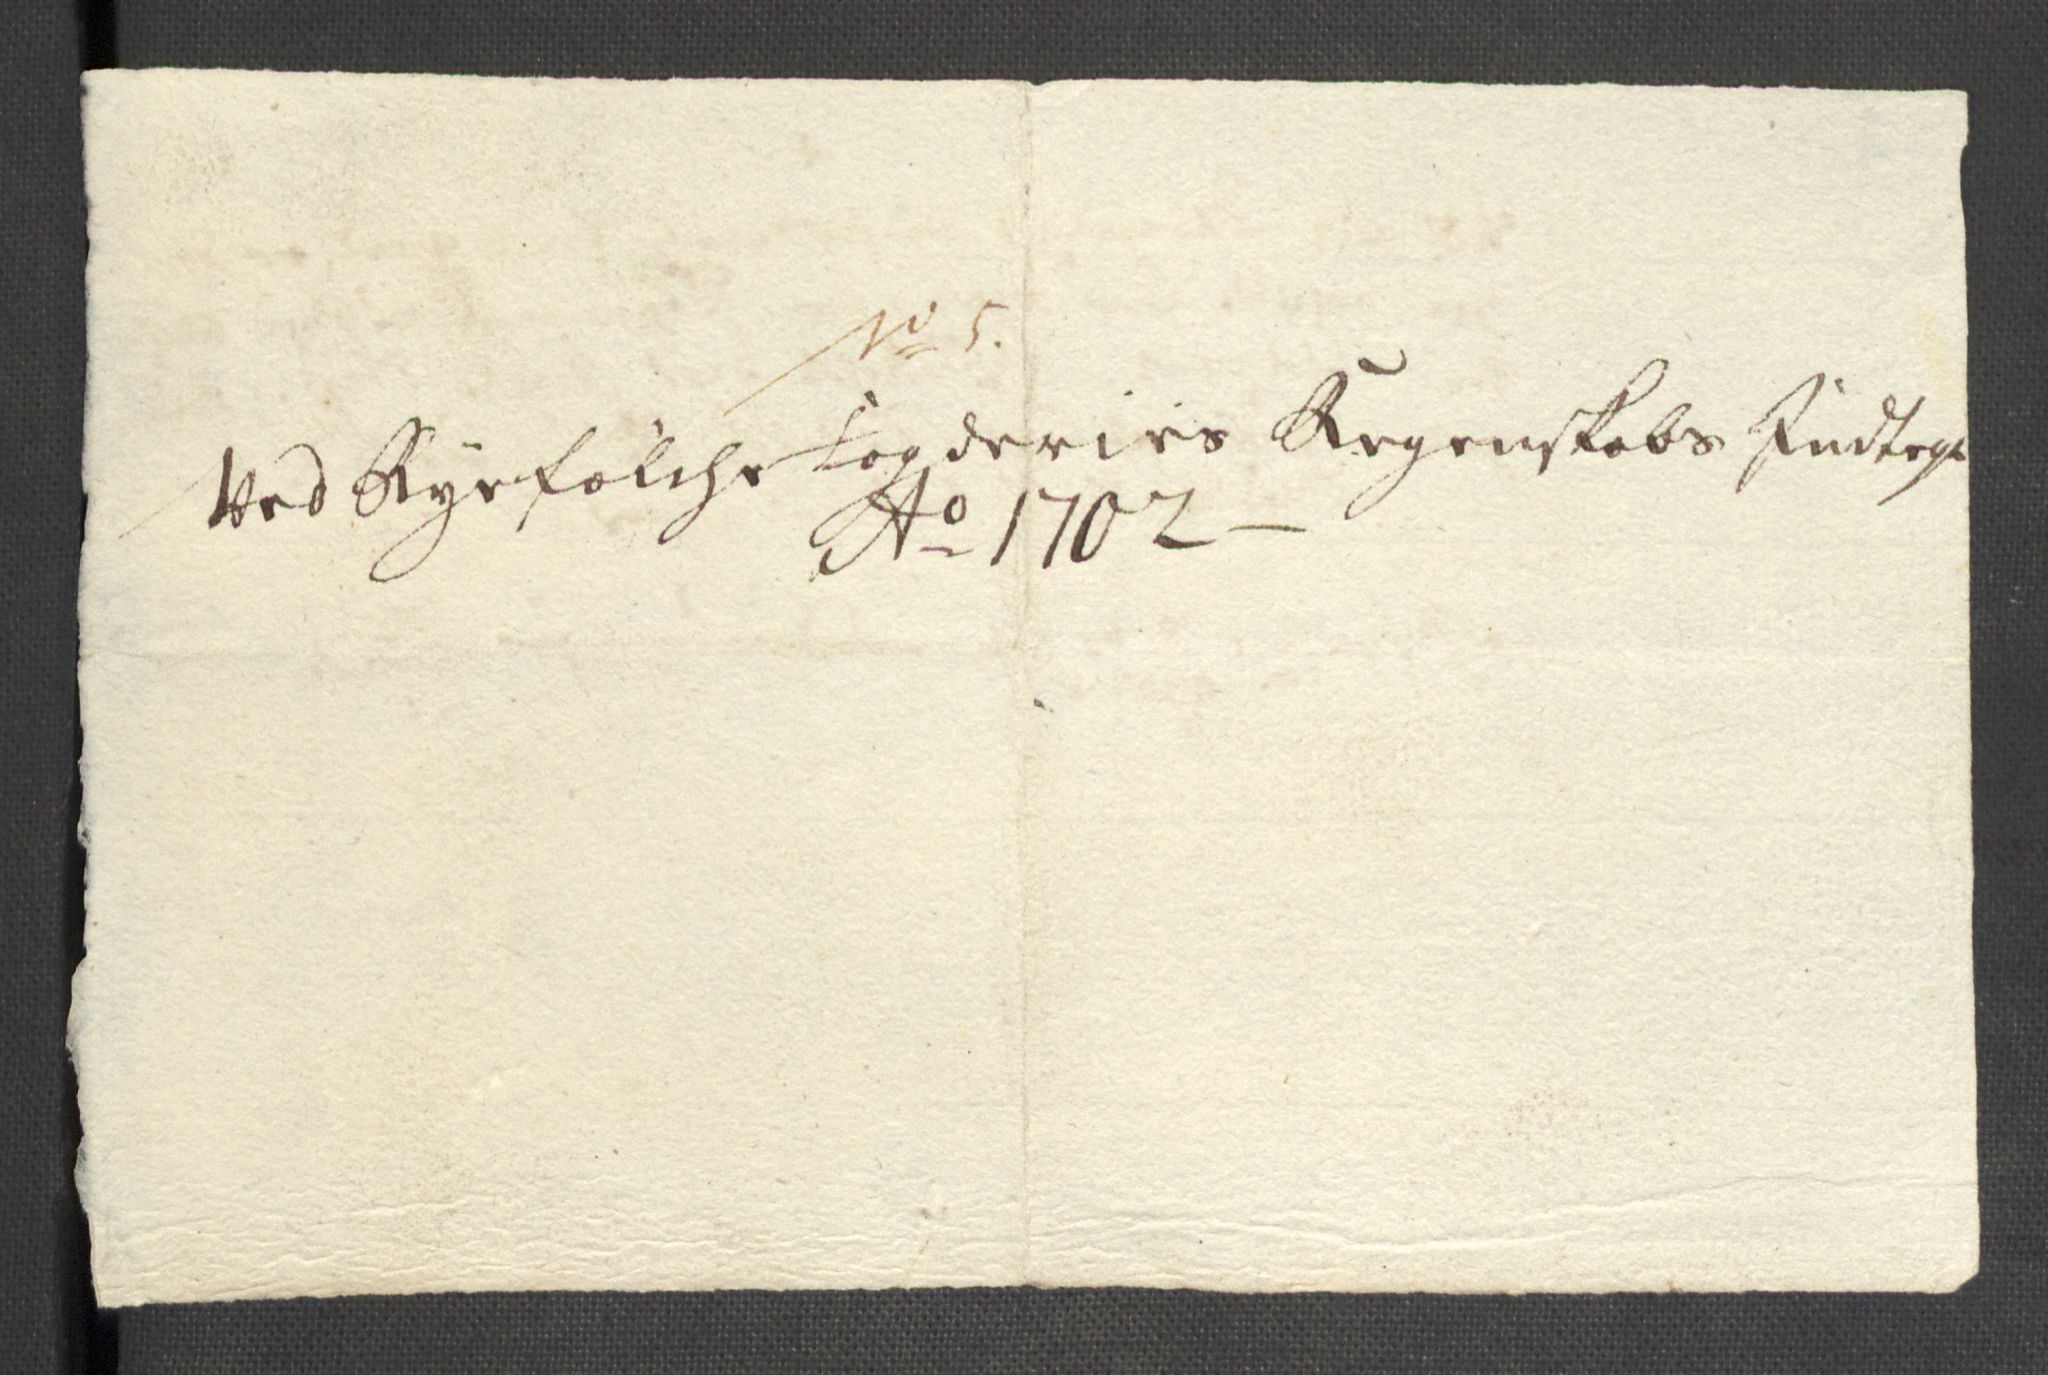 No 5.
Ved Ryefølche Fogderies Regenskabs Indtegt
Ao 1702 –